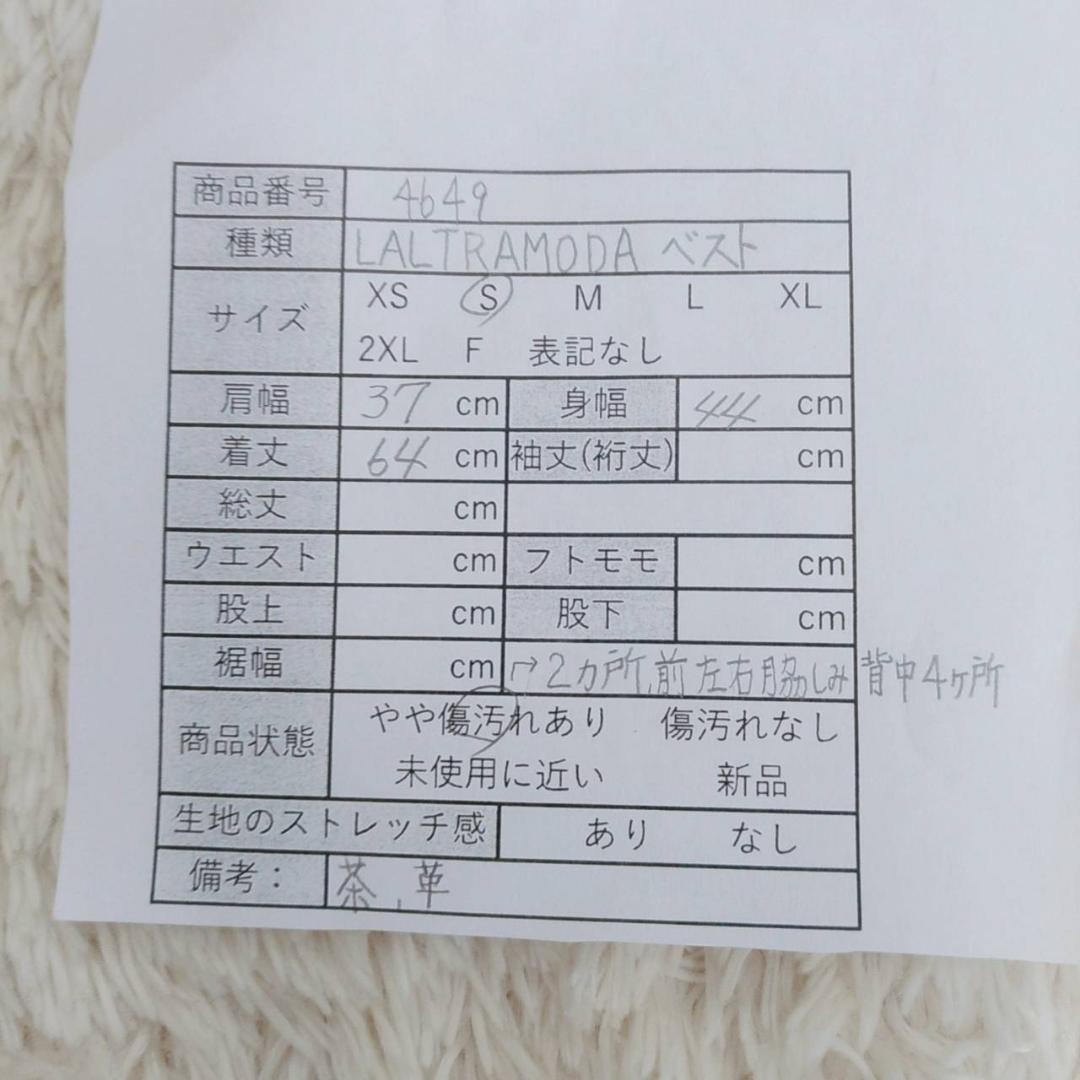 商品番号 4649
種類 LALTRAMODA ベスト
サイズ XS S M L XL
2XL F 表記なし
肩幅 37 cm 身幅 44 cm
着丈 64 cm 袖丈(裄丈) cm
総丈 cm
ウエスト cm フトモモ cm
股上 cm 股下 cm
裾幅 cm →2カ所,前左右脇しみ 背中4ヶ所
商品状態 やや傷汚れあり 傷汚れなし
未使用に近い 新品
生地のストレッチ感 あり なし
備考： 茶、革